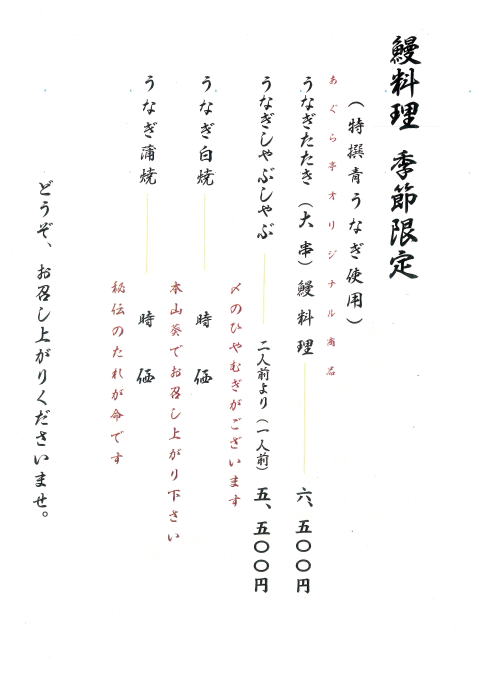 鰻料理 季節限定
（特撰青うなぎ使用）
あぐら亭オリジナル商品
うなぎたたき（大串）鰻料理 六、五〇〇円
うなぎしゃぶしゃぶ 二人前より（一人前） 五、五〇〇円
〆のひやむぎがございます
うなぎ白焼 時価
本山葵でお召し上がり下さい
うなぎ蒲焼 時価
秘伝のたれが命です
どうぞ、お召し上がりくださいませ。